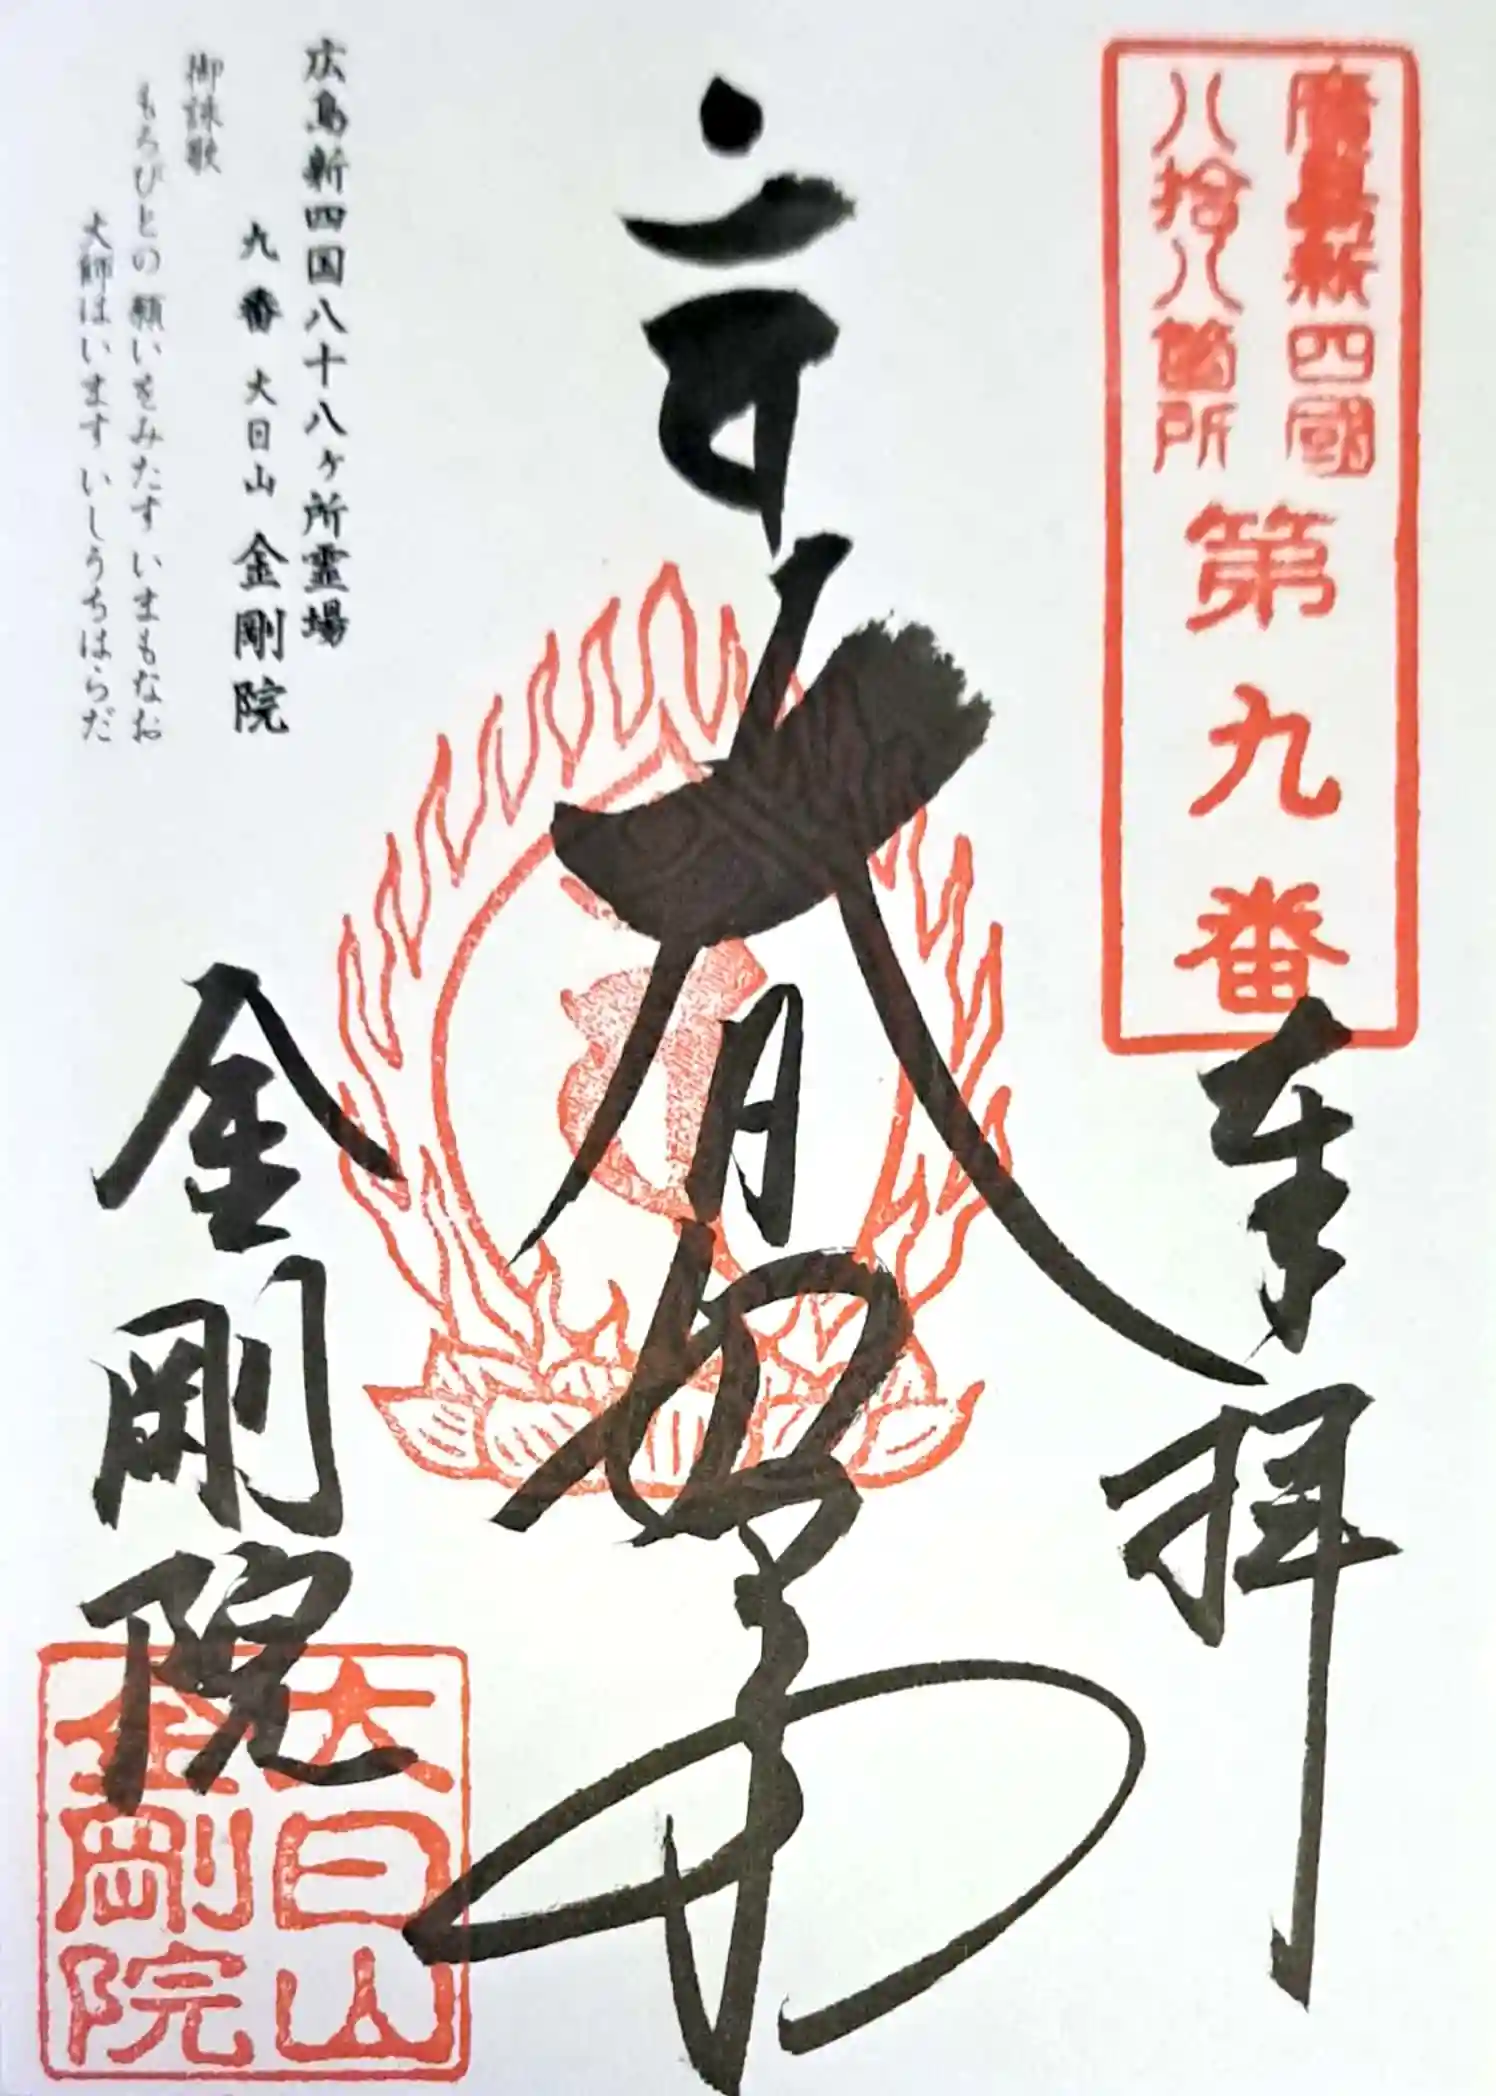 廣島新四國
八拾八箇所
第九番
奉拝
大日如来
金剛院
大日山
金剛院
広島新四国八十八ヶ所霊場
九番 大日山 金剛院
御詠歌
もろびとの願いをみたすいまもなお
大師はいますいしうちはらだ